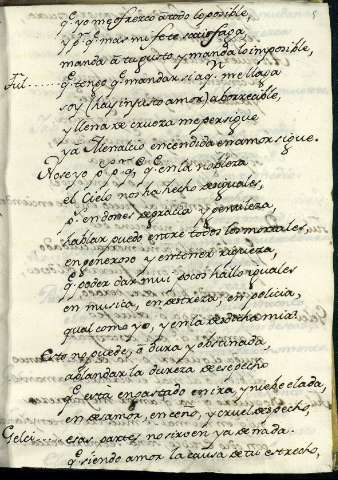 q̃ yo me ofrezco a todo lo posible,
y p.r q̃ mas mi fe te satisfaga
manda à tu gusto, y manda lo imposible,
Ful....... q̃ tengo q̃ mandar si aq.n me llaga
soy (hay injusto amor) aborrecible,
y llena de crueza me persigue
y à Menalcio encendida en amor sigue.
No se yo p.r q̃, q̃ en la nobleza
el Cielo nos ha hecho desiguales,
p.s en dones de gracia y gentileza
hablar puedo entre todos los mortales,
en generoso y en tener riqueza,
q̃ poder dar mui pocos hallo iguales
en musica, en destreza, en policia,
qual como yo, y en la desdicha mia?
Esto no puede, ò dura y obstinada
ablandar la dureza de ese pecho
q̃ està engastado en ira, y nieve elada,
en desamor, en ceño, y cruel despecho,
Gelci.... esas partes no sirven ya de nada.
q̃ siendo amor la causa de tu estrecho,